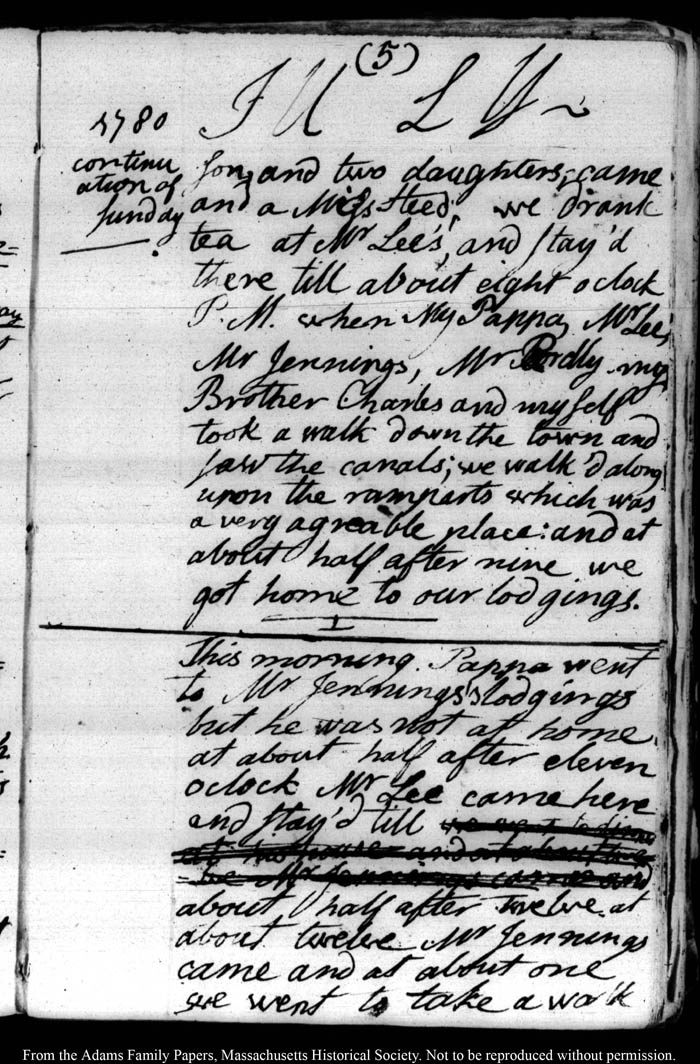 (5)
JULY
1780
continu
ation of
sunday
son, and two daughters, came
and a Miss Steed; we drank
tea at Mr Lee's, and stay'd
there till about eight o clock
P. M. when My Pappa, Mr Lee,
Mr Jennings, Mr Bordly my
Brother Charles and myself
took a walk down the town and
saw the canals; we walk'd along
upon the ramparts which was
a very agreable place: and at
about half after nine we
got home to our lodgings.
This morning. Pappa went
to Mr Jennings's lodgings
but he was not at home.
at about half after eleven
oclock Mr Lee came here
and stay'd till we went to dine
at his house and at about
Mr Jennings came and
about half after twelve. at
about twelve Mr Jennings
came and at about one
we went to take a walk
From the Adams Family Papers, Massachusetts Historical Society. Not to be reproduced without permission.